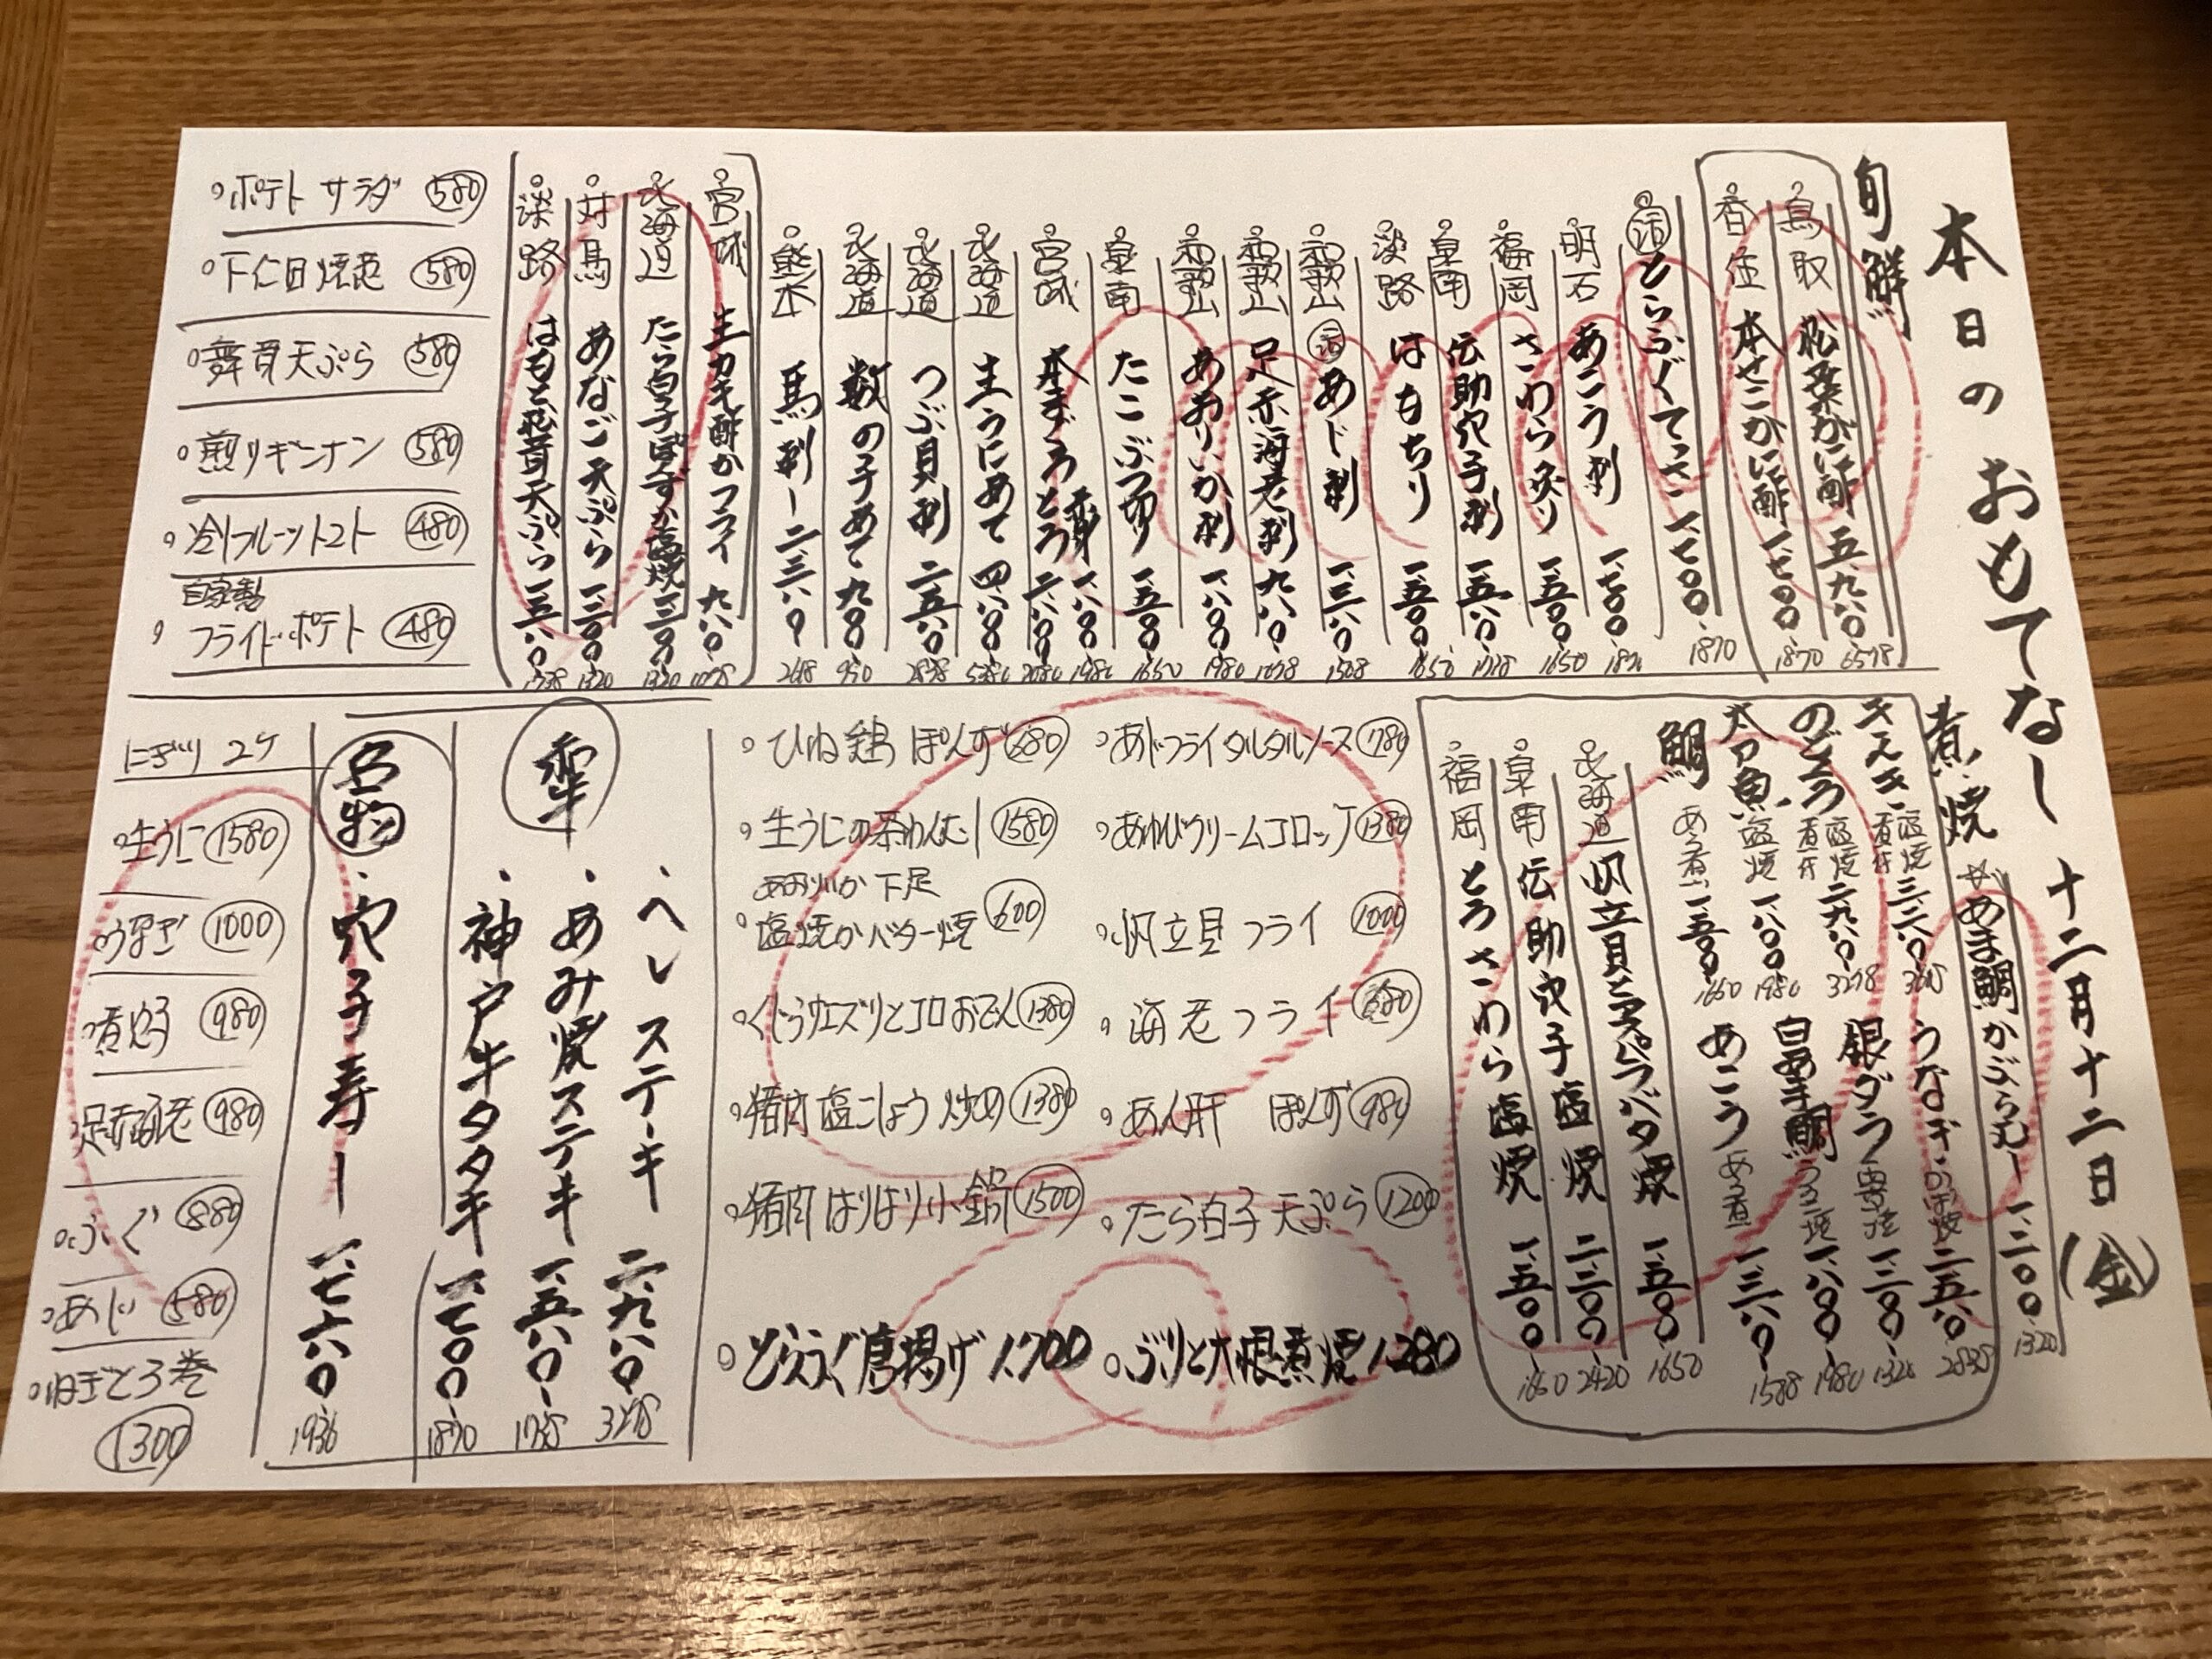 本日のおもてなし 十二月十二日(金)
旬鮮
鳥取 松葉がに酢 五、九八〇 6578
香住 本せこがに酢 一、七〇〇 1870
活 とらふぐてっさ 一、七〇〇 1870
明石 あこう刺 一、七〇〇
福岡 さわら炙り 一、五〇〇 1650
泉南 伝助穴子刺 一、五八〇
淡路 はもちり 一、五〇〇 1650
和歌山 活 あじ刺 一、三八〇
和歌山 足赤海老刺 九八〇 1078
和歌山 あおりいか刺 一、八〇〇 1980
泉南 たこぶつ切り 一、五〇〇 1650
宮城 本まぐろ 赤身 一、八〇〇 1980
とろ 二、八〇〇 3080
北海道 生うにあて 四、八〇〇 5280
北海道 つぶ貝刺 二、五八〇 2838
北海道 数の子あて 九〇〇
熊本 馬刺し 二、三八〇
宮城 生カキ酢かフライ 九八〇 1078
北海道 たら白子ぽんずか塩焼 一、二〇〇 1320
対馬 あなご天ぷら 一、二〇〇 1320
淡路 はもと松茸天ぷら 一、五八〇 1738
・ポテトサラダ 580
・下仁田焼葱 580
・舞茸天ぷら 580
・煎りギンナン 580
・冷フルーツトマト 480
自家製
・フライドポテト 480
煮・焼
☆あま鯛かぶら蒸し 一、二〇〇 1320
きんき 塩焼 煮付 三、二八〇
うなぎ かば焼 二、五八〇 2838
のどぐろ 塩焼 煮付 二、九八〇 3278
銀ダラ 西京焼 一、二〇〇 1320
太刀魚 塩焼 一、八〇〇 1980
白あま鯛 うろこ焼 一、八〇〇 1980
鯛 あら煮 一、五〇〇 1650
あこう あら煮 一、三八〇
北海道 帆立貝とアスパラバター焼 一、五〇〇 1650
泉南 伝助穴子塩焼 二、二〇〇 2420
福岡 とろさわら塩焼 一、五〇〇 1650
・あじフライタルタルソース 780
・あわびクリームコロッケ 1380
・帆立貝フライ 1000
・海老フライ
・あん肝 ぽんず 980
・たら白子天ぷら 1200
・ぶりと大根煮焼 1.280
・ひね鶏ぽんず 680
・生うにの茶わんむし 1580
あおりいか下足
・塩焼かバター焼 600
・くじらウエスツとコロおでん 1380
・猪肉塩こしょう炒め 1380
・猪肉はりはり小鍋 1500
・とらふぐ唐揚げ 1.700
・ヘレステーキ 二、九八〇 3278
・あみ焼ステーキ 一、五八〇 1738
・神戸牛タタキ 一、七〇〇 1870
名物
・穴子寿し 一、七六〇 1936
にぎり 2ケ
・生うに 1580
・うなぎ 1000
・煮穴子 980
・足赤海老 980
・ふぐ 880
・あじ 580
・ねぎとろ巻 1300